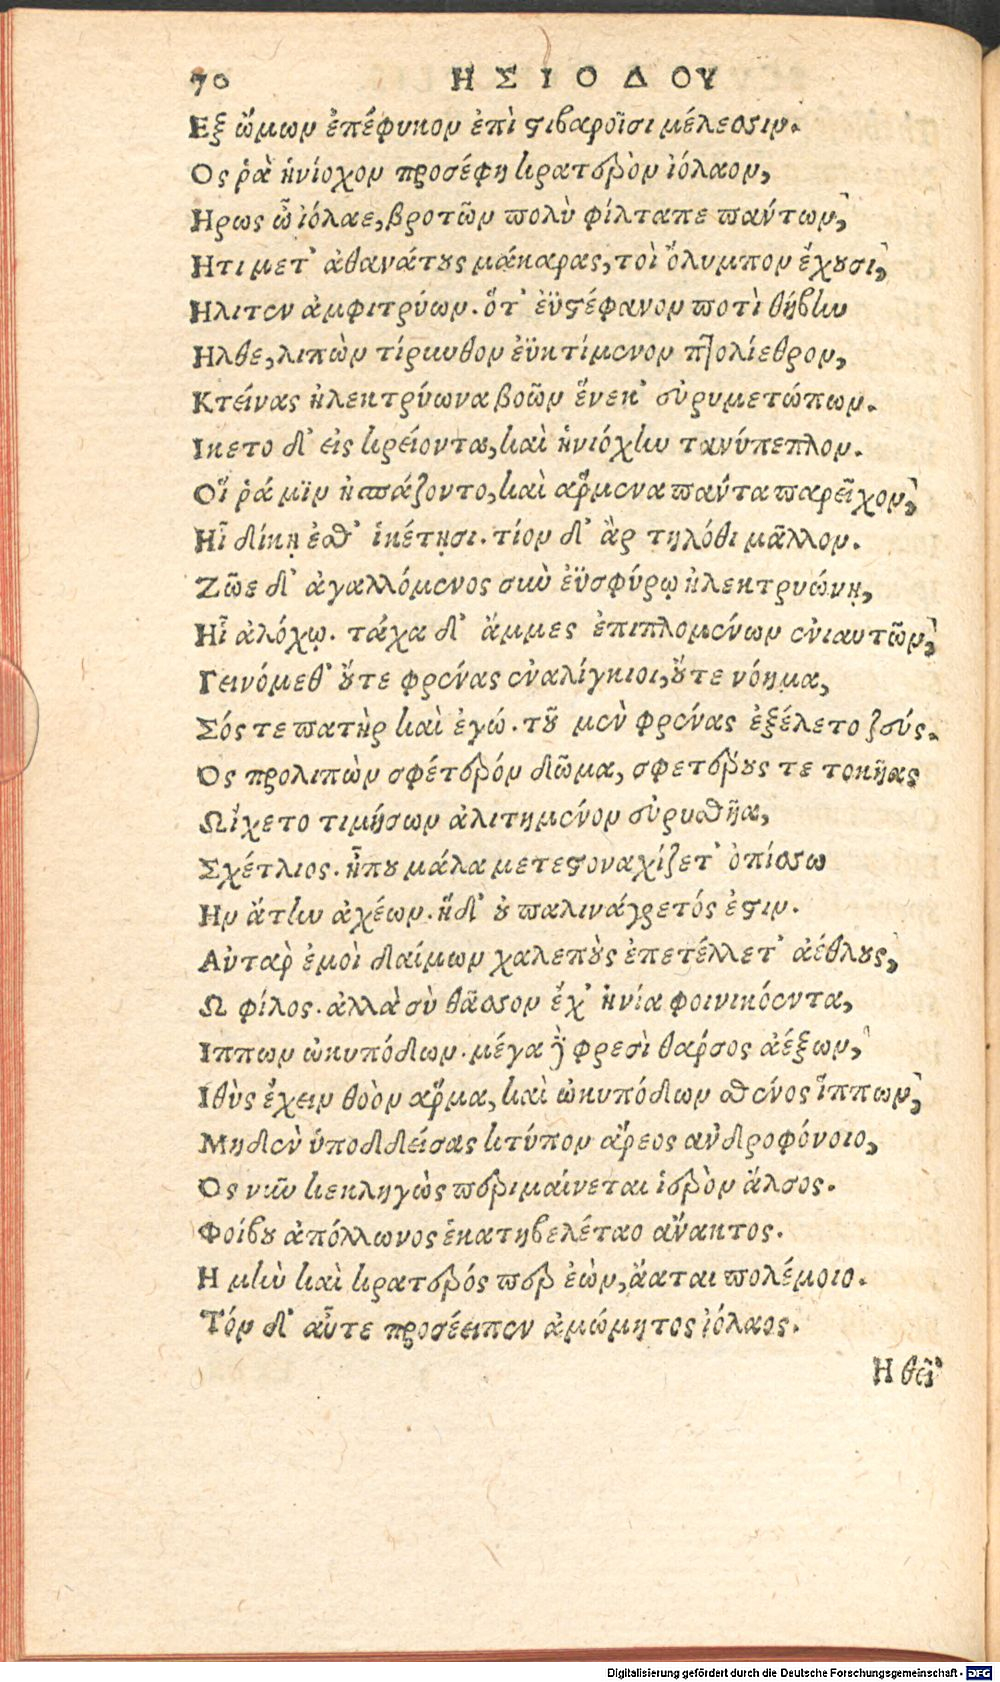 70 ΗΣΙΟΔΟΥ
Εξ ὤμων ἐπέφυκον ἐπὶ στιβαροῖσι μέλεσσιν.
Ος ῥὰ ἡνίοχον προσέφη κρατερὸν ἰόλαον,
Ηρως ὦ ἰόλαε, βροτῶν πολὺ φίλταπε πάντων,
Ητι μετ' ἀθανάτους μάκαρας, τοὶ ὄλυμπον ἔχουσι,
Ηλιτεν ἀμφιτρύων. ὅτ' ἐϋστέφανον ποτὶ θήβην
Ηλθε, λιπὼν τίρυνθον ἐϋκτίμενον πτολίεθρον,
Κτείνας ἠλεκτρύωνα βοῶν ἕνεκ' εὐρυμετώπων.
Ικετο δ' εἰς κρείοντα, καὶ ἡνιόχην τανύπεπλον.
Οἵ ῥά μϊν ἠσπάζοντο, καὶ ἄρμενα πάντα παρεῖχον,
Ηἷ δίκη ἐσθ' ἱκέτῃσι. τίον δ' ἂρ τηλόθι μᾶλλον.
Ζῶε δ' ἀγαλλόμενος σὺν ἐϋσφύρῳ ἠλεκτρυώνῃ,
Ηἷ ἀλόχῳ. τάχα δ' ἄμμες ἐπιπλομένων ἐνιαυτῶν,
Γεινόμεθ' οὔτε φρένας ἐναλίγκιοι, οὔτε νόημα,
Σός τε πατὴρ καὶ ἐγώ. τοῦ μὲν φρένας ἐξέλετο ζεύς.
Ὃς προλιπὼν σφέτερόν δῶμα, σφετέρους τε τοκῆας
Ωἴχετο τιμήσων ἀλιτημένον εὐρυσθῆα,
Σχέτλιος. ἦπου μάλα μετεστοναχίζετ' ὀπίσσω
Ην ἄτην ἀχέων. ἥδ' οὐ παλινάγρετός ἐστιν.
Αὐταρ ἐμοὶ δαίμων χαλεποὺς ἐπετέλλετ' ἀέθλους,
Ω φίλος. ἀλλὰ σὺ θᾶσσον ἔχ' ἡνία φοινικόεντα,
Ιππων ὠκυπόδων. μέγα δὲ φρεσὶ θάρσος ἀέξων,
Ιθὺς ἔχειν θοὸν ἅρμα, καὶ ὠκυπόδων σθένος ἵππων,
Μηδὲν ὑποδδείσας κτύπον ἄρεος ἀνδροφόνοιο,
Ὃς νῦν κεκληγὼς περιμαίνεται ἱερὸν ἄλσος.
Φοίβου ἀπόλλωνος ἑκατηβελέταο ἄνακτος.
Η μὴν καὶ κρατερός περ ἐὼν, ἄαται πολέμοιο.
Τόν δ' αὖτε προσέειπεν ἀμώμητος ἰόλαος.
Η θεῖ'
Digitalisierung gefördert durch die Deutsche Forschungsgemeinschaft - DFG